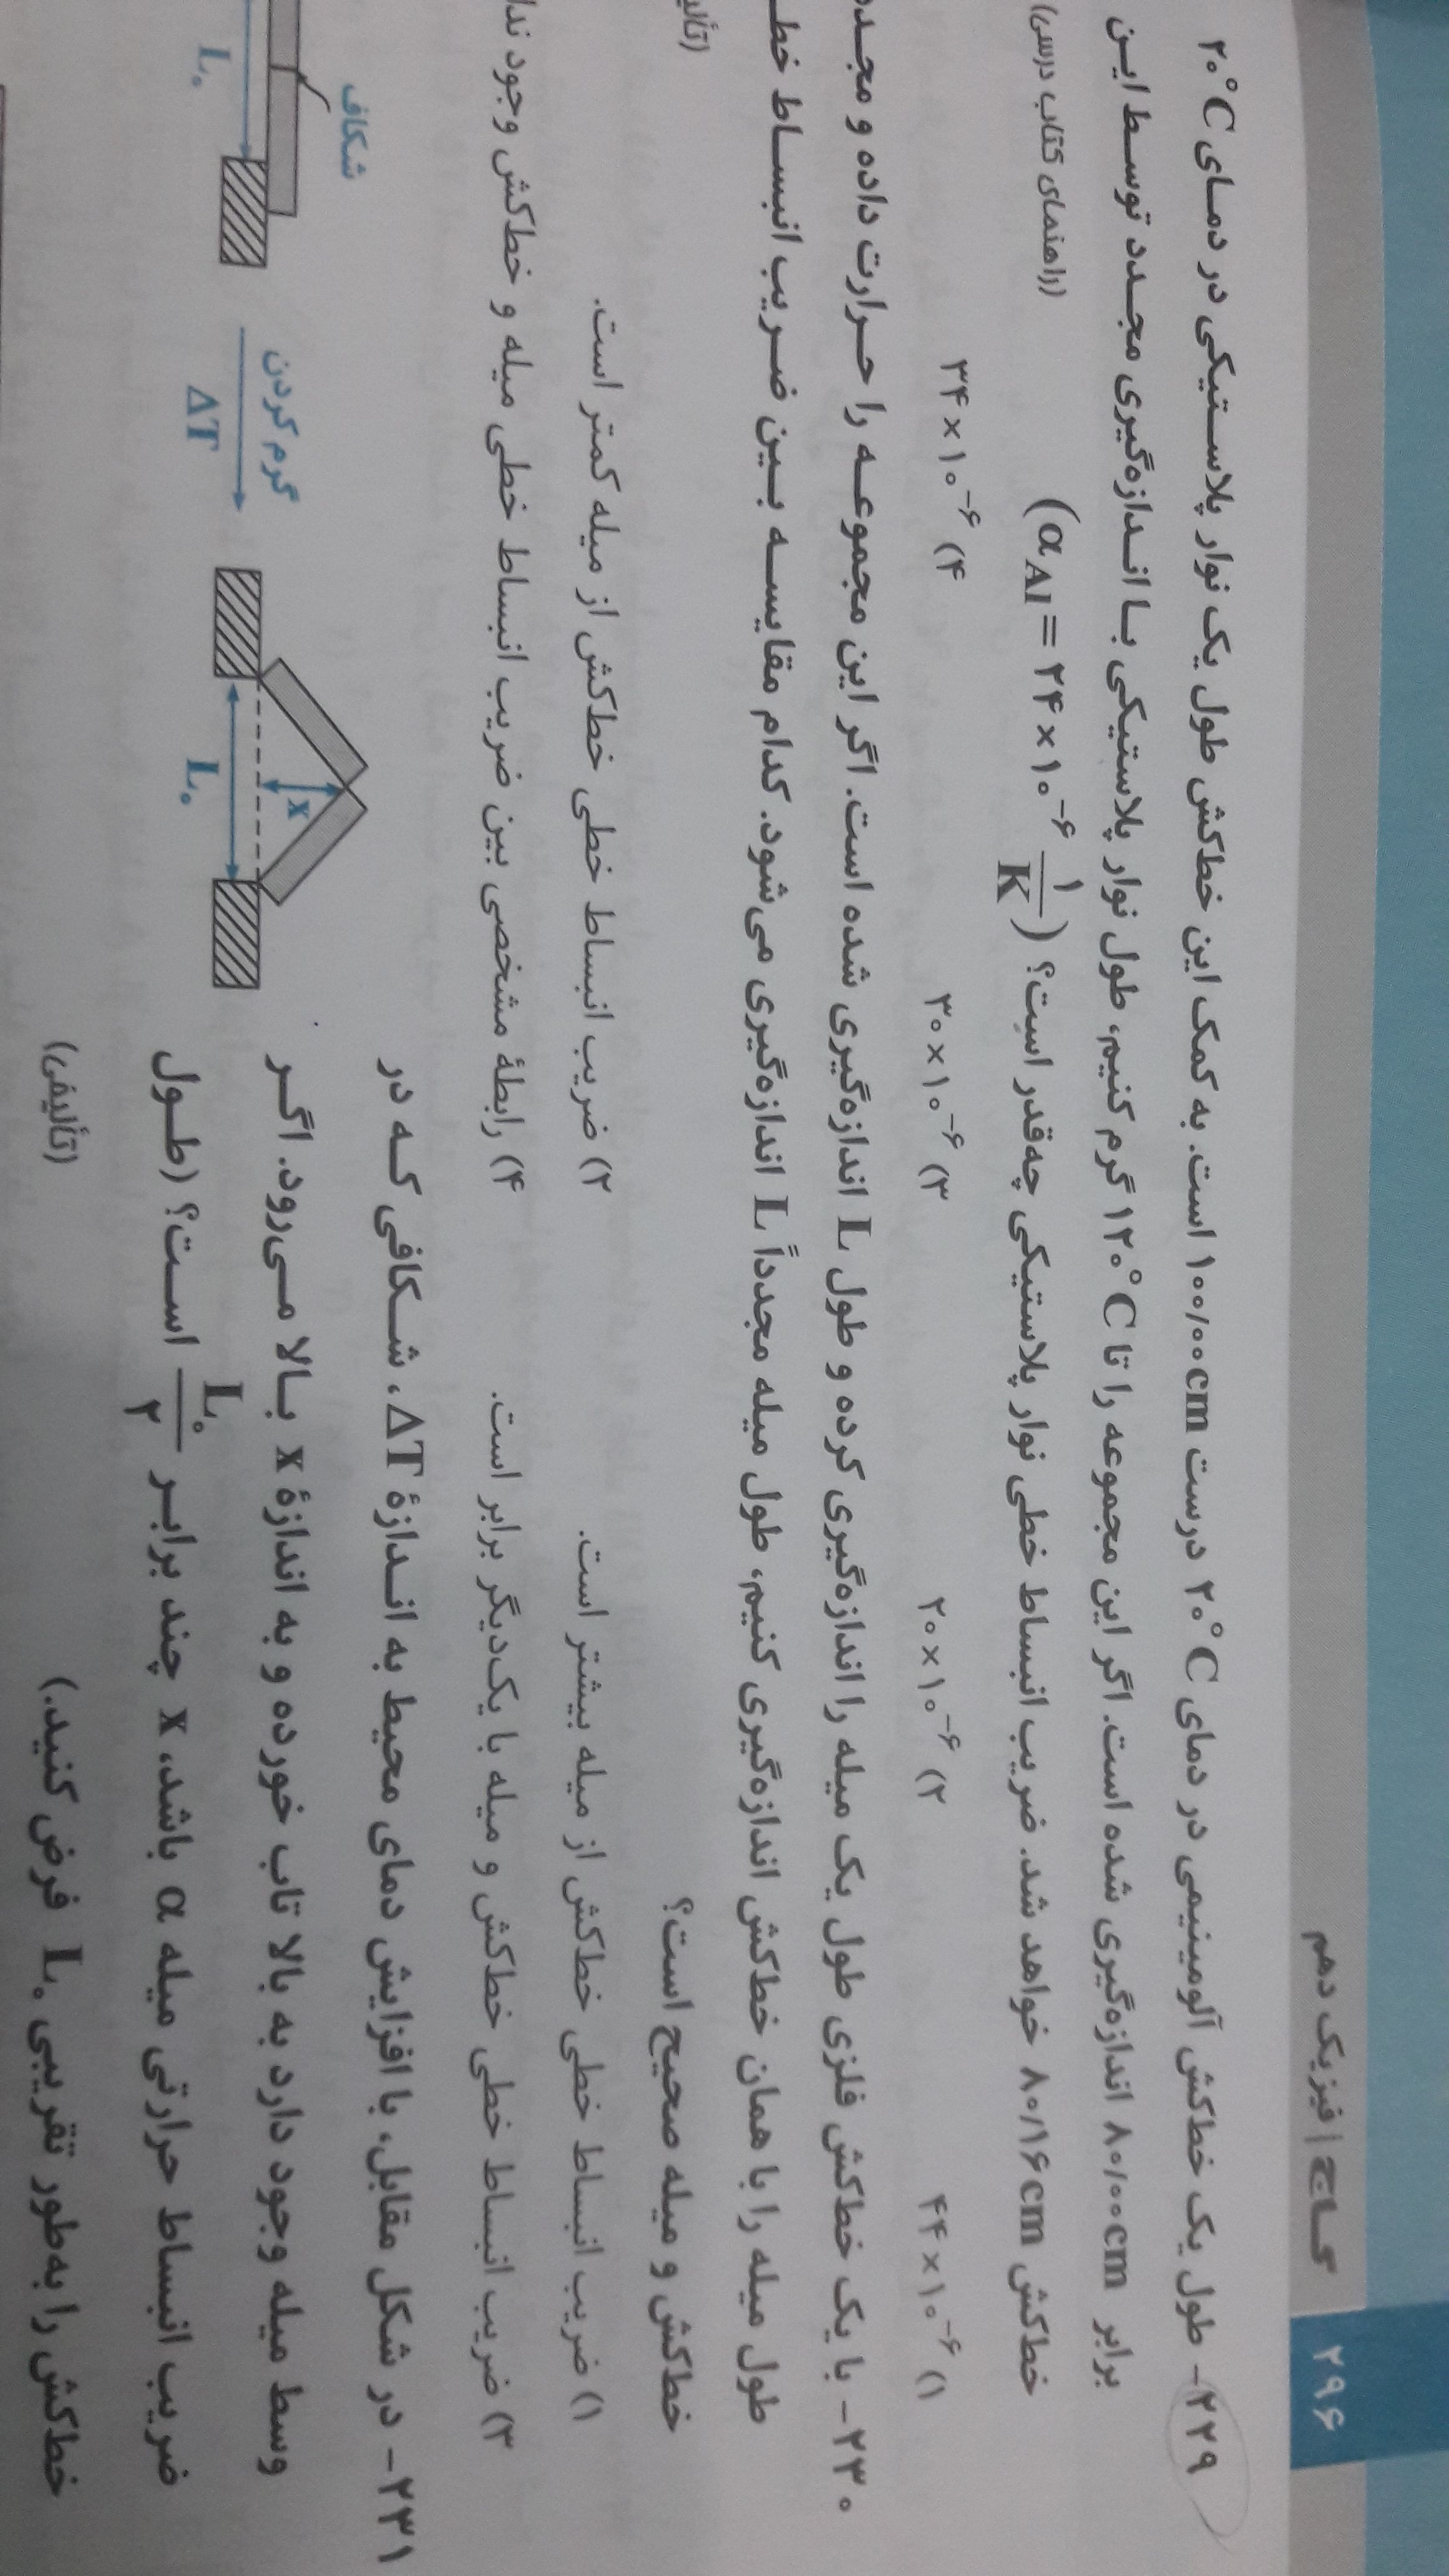 ۲۹۶
گاج | فیزیک دهم
۲۲۹- طول یک خط‌کش آلومینیمی در دمای ۲۰°C درست ۱۰۰/۰۰cm است. به کمک این خط‌کش طول یک نوار پلاستیکی در دمای ۲۰°C
برابر ۸۰/۰۰cm اندازه‌گیری شده است. اگر این مجموعه را تا ۱۲۰°C گرم کنیم، طول نوار پلاستیکی با اندازه‌گیری مجدد توسط این
خط‌کش ۸۰/۱۶cm خواهد شد. ضریب انبساط خطی نوار پلاستیکی چه‌قدر است؟ (α_Al = ۲۴×۱۰^-۶ ۱/K) (راهنمای کتاب درسی)
۱) ۴۴×۱۰^-۶ ۲) ۲۰×۱۰^-۶ ۳) ۳۰×۱۰^-۶ ۴) ۳۴×۱۰^-۶
۲۳۰- با یک خط‌کش فلزی طول یک میله را اندازه‌گیری کرده و طول L اندازه‌گیری شده است. اگر این مجموعه را حرارت داده و
طول میله را با همان خط‌کش اندازه‌گیری کنیم، طول میله مجدداً L اندازه‌گیری می‌شود. کدام مقایسه بین ضریب انبساط
خط‌کش و میله صحیح است؟
۱) ضریب انبساط خطی خط‌کش از میله بیشتر است. ۲) ضریب انبساط خطی خط‌کش از میله کمتر است.
۳) ضریب انبساط خطی خط‌کش و میله با یک‌دیگر برابر است. ۴) رابطهٔ مشخصی بین ضریب انبساط خطی میله و خط‌کش وجود
۲۳۱- در شکل مقابل، با افزایش دمای محیط به اندازهٔ ΔT، شکافی که در
وسط میله وجود دارد به بالا تاب خورده و به اندازهٔ x بالا می‌رود. اگر
ضریب انبساط حرارتی میله α باشد، x چند برابر L₀/۲ است؟ (طول
خط‌کش را به‌طور تقریبی L₀ فرض کنید.) (تألیفی)
شکاف
L₀
گرم کردن
ΔT
x
L₀